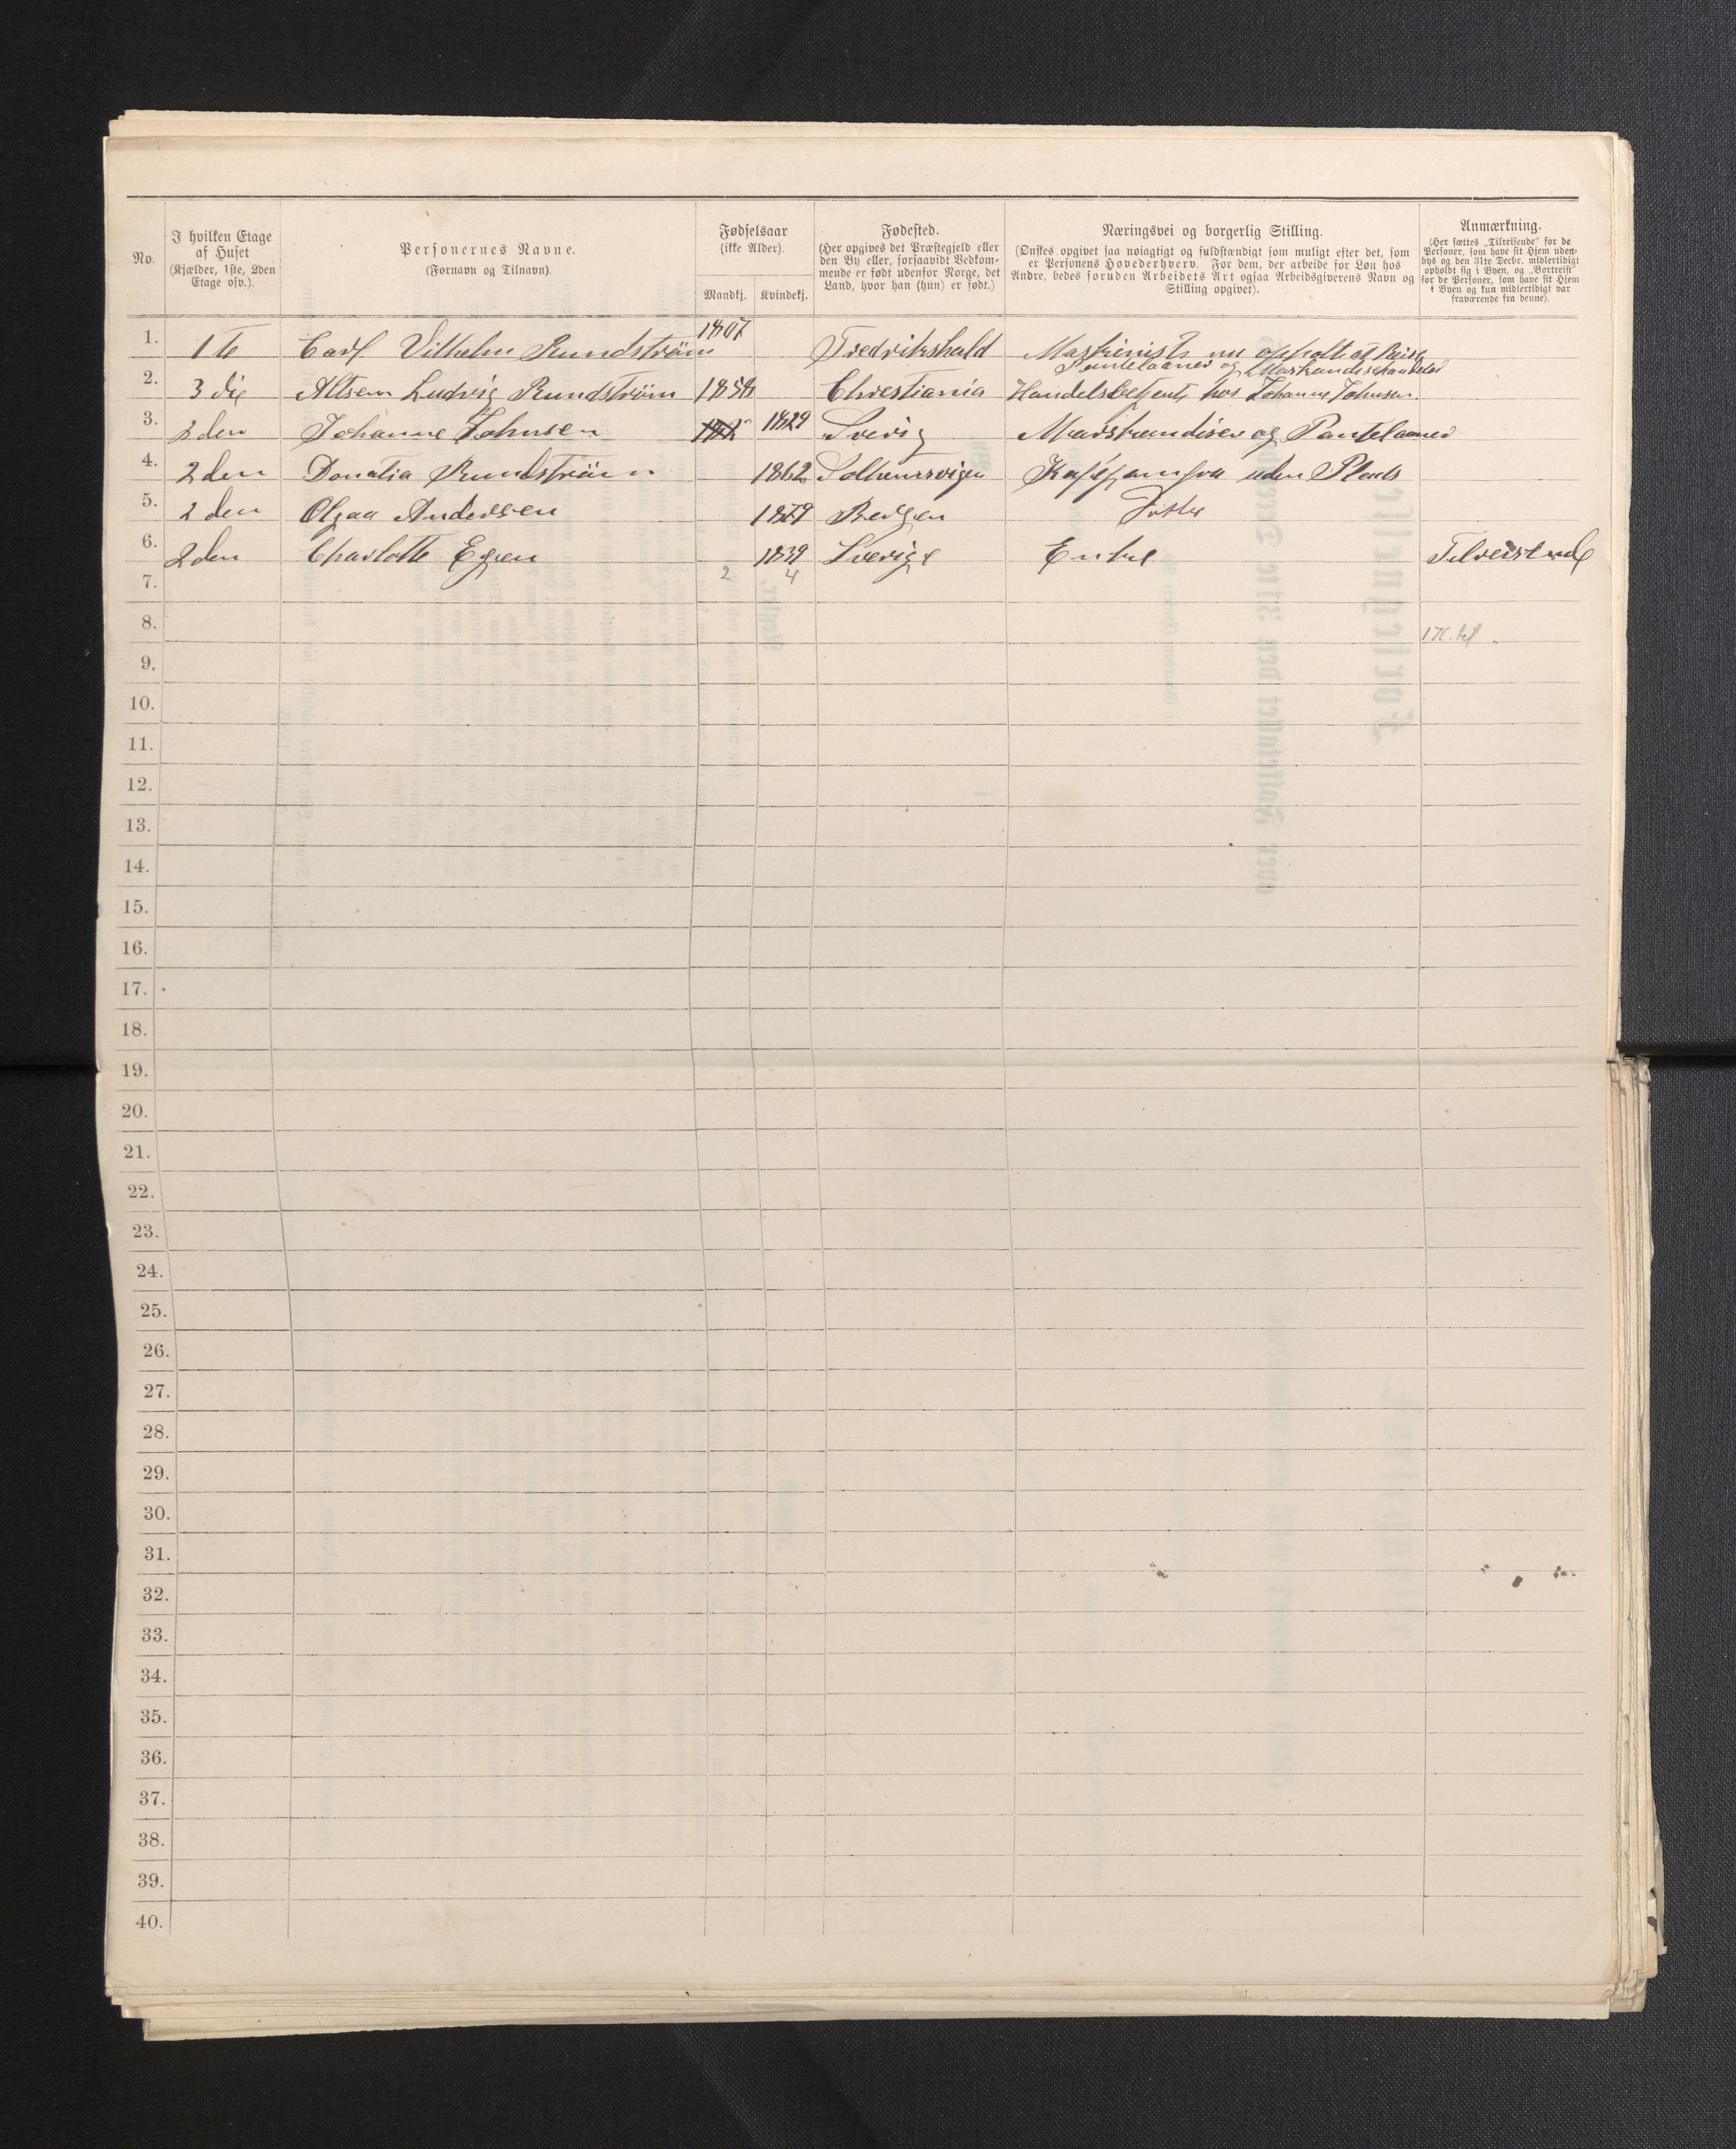 No.
I hvilken Etage af Huset (Kjælder, 1ste, 2den Etage osv.).
Personernes Navne. (Fornavn og Tilnavn).
Fødselsaar (ikke Alder).
Mandkj. Kvindekj.
Fødested. (Her opgives det Præstegjeld eller den By eller, forsaavidt Vedkommende er født udenfor Norge, det Land, hvor han (hun) er født.)
Næringsvei og borgerlig Stilling. (Ønskes opgivet saa nøiagtigt og fuldstændigt som muligt efter det, som er Personens Hovederhverv. For dem, der arbeide for Løn hos Andre, bedes foruden Arbeidets Art ogsaa Arbeidsgiverens Navn og Stilling opgivet).
Anmærkning. (Her sættes „Tilreisende" for de Personer, som have sit Hjem udenbys og den 31te Decbr. midlertidigt opholdt sig i Byen, og „Bortreist" for de Personer, som have sit Hjem i Byen og kun midlertidigt var fraværende fra denne).
1. 1te Carl Vilhelm Rundström 1807 Fredrikshald Maskinist nu
2. 3die Ludvig Rundström 1858 Christiania Pantelaaner og Handelsbetjent hos Johanne Johnsen
3. 2den Johanne Johnsen 1829 Sverig Marskandiser og Pantelaaner
4. 2den Donatia Rundström 1862 uden Plads
5. 2den Olgaa Andersen 1879 Bergen
6. 2den Charlotte Egen 1839 Sverige Enke Tilreisende
7. 2 4
8.
9.
10.
11.
12.
13.
14.
15.
16.
17.
18.
19.
20.
21.
22.
23.
24.
25.
26.
27.
28.
29.
30.
31.
32.
33.
34.
35.
36.
37.
38.
39.
40.